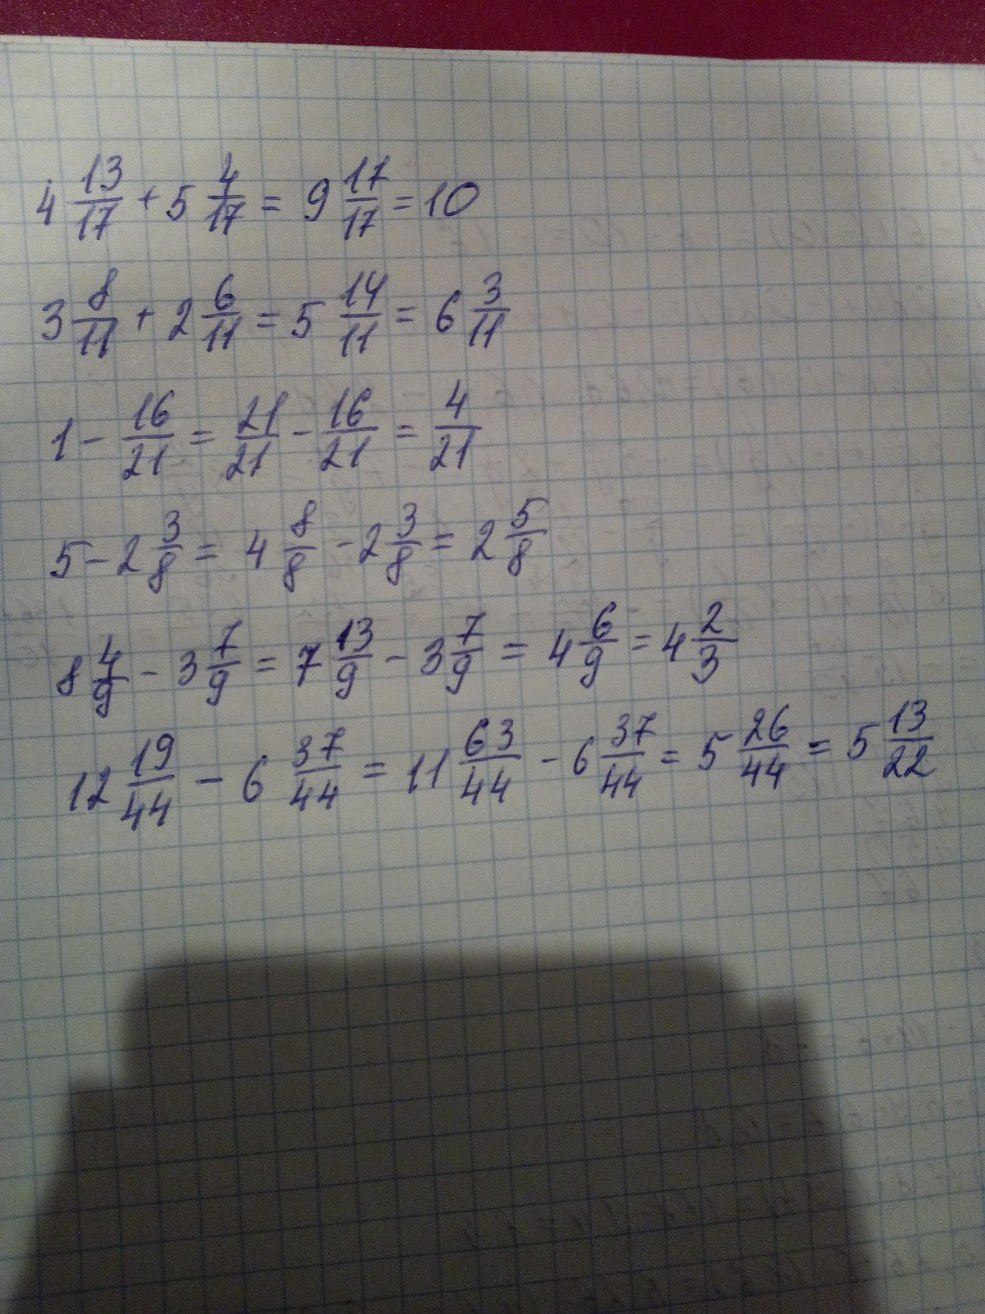 4 13/17 + 5 4/17 = 9 17/17 = 10
3 8/11 + 2 6/11 = 5 14/11 = 6 3/11
1 - 16/21 = 21/21 - 16/21 = 4/21
5 - 2 3/8 = 4 8/8 - 2 3/8 = 2 5/8
8 4/9 - 3 7/9 = 7 13/9 - 3 7/9 = 4 6/9 = 4 2/3
12 19/44 - 6 37/44 = 11 63/44 - 6 37/44 = 5 26/44 = 5 13/22